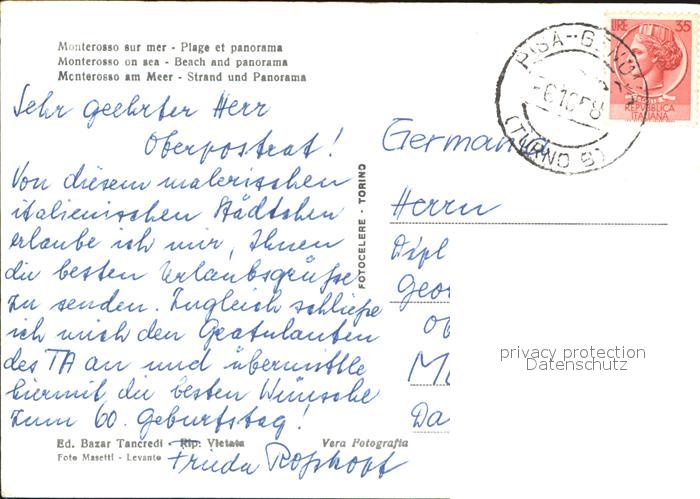 Monterosso sur mer - Plage et panorama
Monterosso on sea - Beach and panorama
Monterosso am Meer - Strand und Panorama
Sehr geehrter Herr
Oberpostrat!
Von diesem malerischen
italienischen Städtchen
erlaube ich mir, Ihnen
die besten Urlaubsgrüße
zu senden. Zugleich schließe
ich mich den Gratulanten
des TA an und übermittle
hiermit die besten Wünsche
zum 60. Geburtstag!
Frieda Roßkopf
Ed. Bazar Tancredi - Rip. Vietata
Vera Fotografia
Foto Masetti - Levanto
FOTOCELERE - TORINO
PISA-GENOVA
6.10.58
(TURNO S)
LIRE 35
REPVBBLICA
ITALIANA
Germania
Herrn
Dipl
Geor
Da
privacy protection
Datenschutz